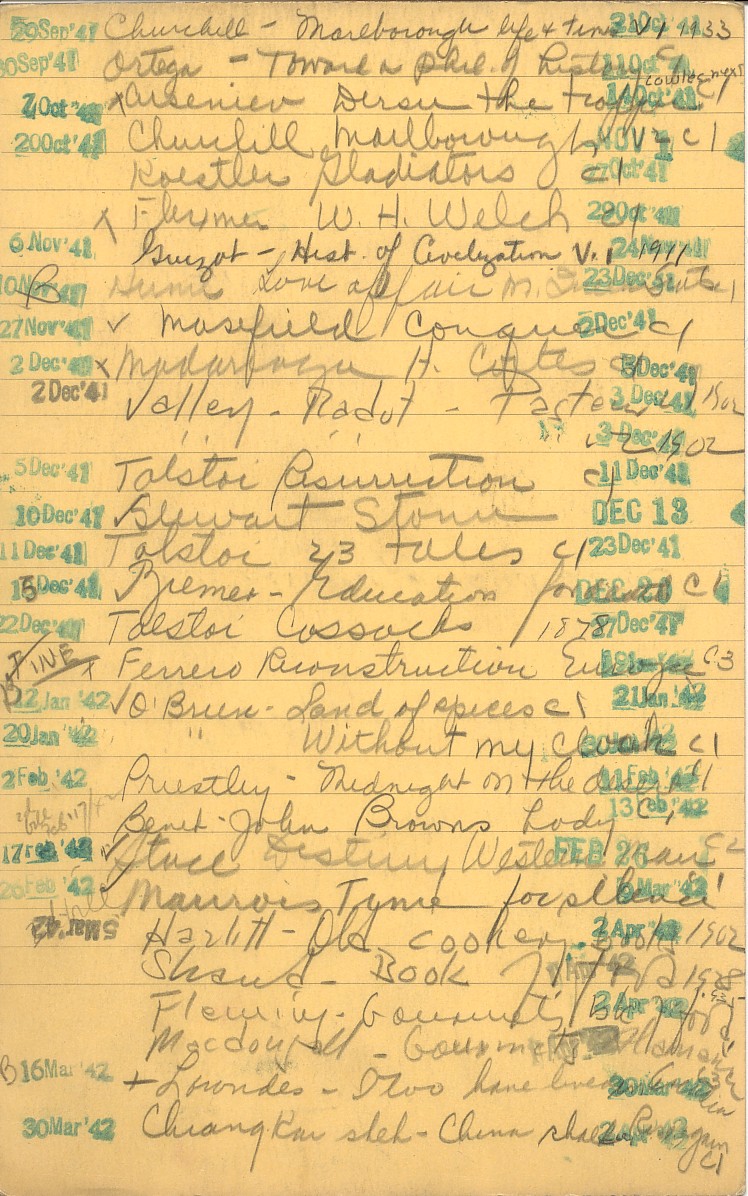 29Sep'41 Churchill - Marlborough life & time V1 1933 2 Oct'41
30Sep'41 Ortega - Toward a phil. of history c1 11Oct'41
7 Oct'41 x Arseniev Dersu the trapper c1 14Oct'41
20Oct'41 Churchill Marlborough V2 c1 NOV
Koestler Gladiators c1 27Oct'41
x Flexner W. H. Welch c1 29Oct'41
6 Nov'41 Guizot - Hist. of Civilization V.1 1911 24Nov'41
10Nov'41 Hume Love affair M. 23Dec'41
27Nov'41 ✓ Masefield Conquer c1 2Dec'41
2 Dec'41 x Madariaga H. Cortes c1 3Dec'41
2 Dec'41 Valley - Radot - Pasteur V1 1902 3 Dec'41
" " V2 1902 3-Dec'41
5Dec'41 Tolstoi Resurrection c1 11Dec'41
10Dec'41 ✓ Stewart Storm DEC 13
11Dec'41 Tolstoi 23 tales c1 23Dec'41
15Dec'41 Education for c1 DEC
22Dec'41 Tolstoi Cossacks 1878 27Dec'41
FINE x Ferrero Reconstruction Europe c3
12Jan'42 ✓ O'Brien - Land of spices c1 21Jan'42
20Jan'42 " Without my cloak c1
2Feb.'42 Priestley - Midnight on the desert c1 11Feb'42
Benet - John Browns body c1 13Feb'42
17Feb'42 ✓ Stace Destiny Western man c2 FEB 26
26Feb'42 Maurois Tyme c1 6Mar'42
5Mar'42 Hazlitt - Old cookery books 1902 2Apr'42
Shand - Book of food 1928
Fleming - Gourmet's Bk of food c1 2Apr'42
Macdougall - Gourmets
B 16Mar'42 + Lowndes - I too have lived in Arcadia 30Mar'42
30Mar'42 Chiang Kai shek - China shall rise again c1 2Apr'42